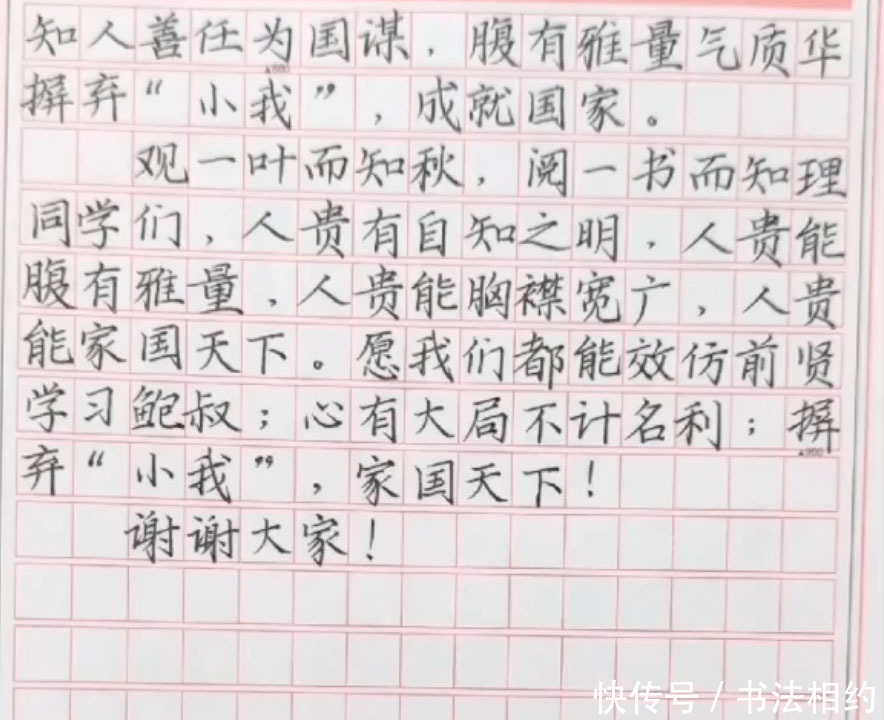 知人善任为国谋，腹有雅量气质华
▲800
摒弃“小我”，成就国家。
观一叶而知秋，阅一书而知理
同学们，人贵有自知之明，人贵能
腹有雅量，人贵能胸襟宽广，人贵
能家国天下。愿我们都能效仿前贤
学习鲍叔；心有大局不计名利；摒
▲900
弃“小我”，家国天下！
谢谢大家！
快传号/书法相约